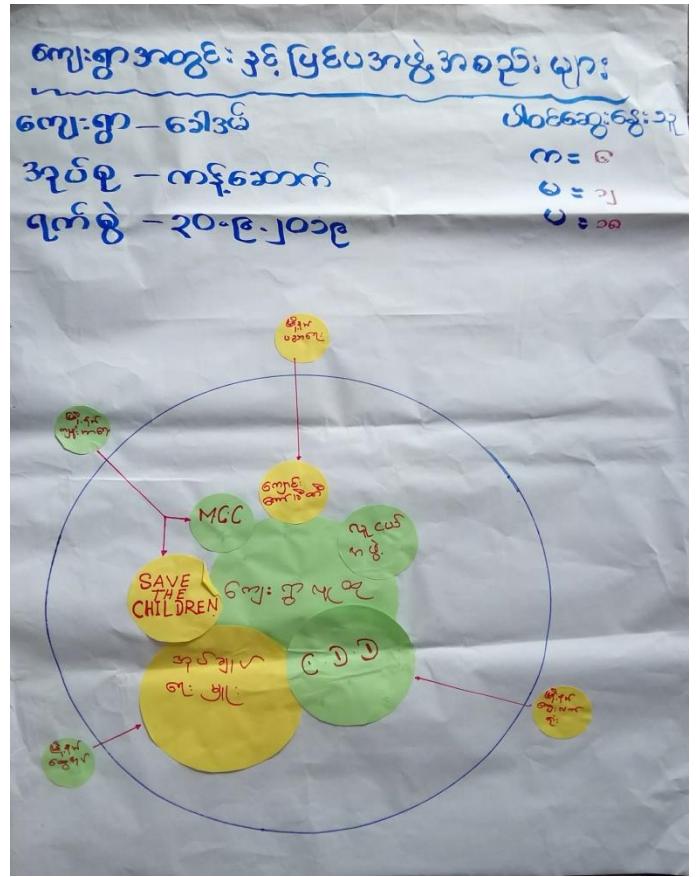 ကျေးရွာအတွင်း နှင့် ပြင်ပအဖွဲ့အစည်းများ
ကျေးရွာ – ခေါဒမ်
အုပ်စု – ကန့်ဆောက်
ရက်စွဲ – ၃၀.၉.၂၀၁၉
ပါဝင်ဆွေးနွေးသူ
က = ၆
မ = ၁၂
ပ = ၁၈
မြို့နယ်
ပညာရေး
မြို့နယ်
ကျောင်း
ကော်မတီ
MCC
လူငယ်
အဖွဲ့
SAVE
THE
CHILDREN
ကျေးရွာလူထု
အုပ်ချုပ်
ရေးမှူး
C.D.D
မြို့နယ်
ကျေးလက်
ဦးစီး
မြို့နယ်
ထွေအုပ်